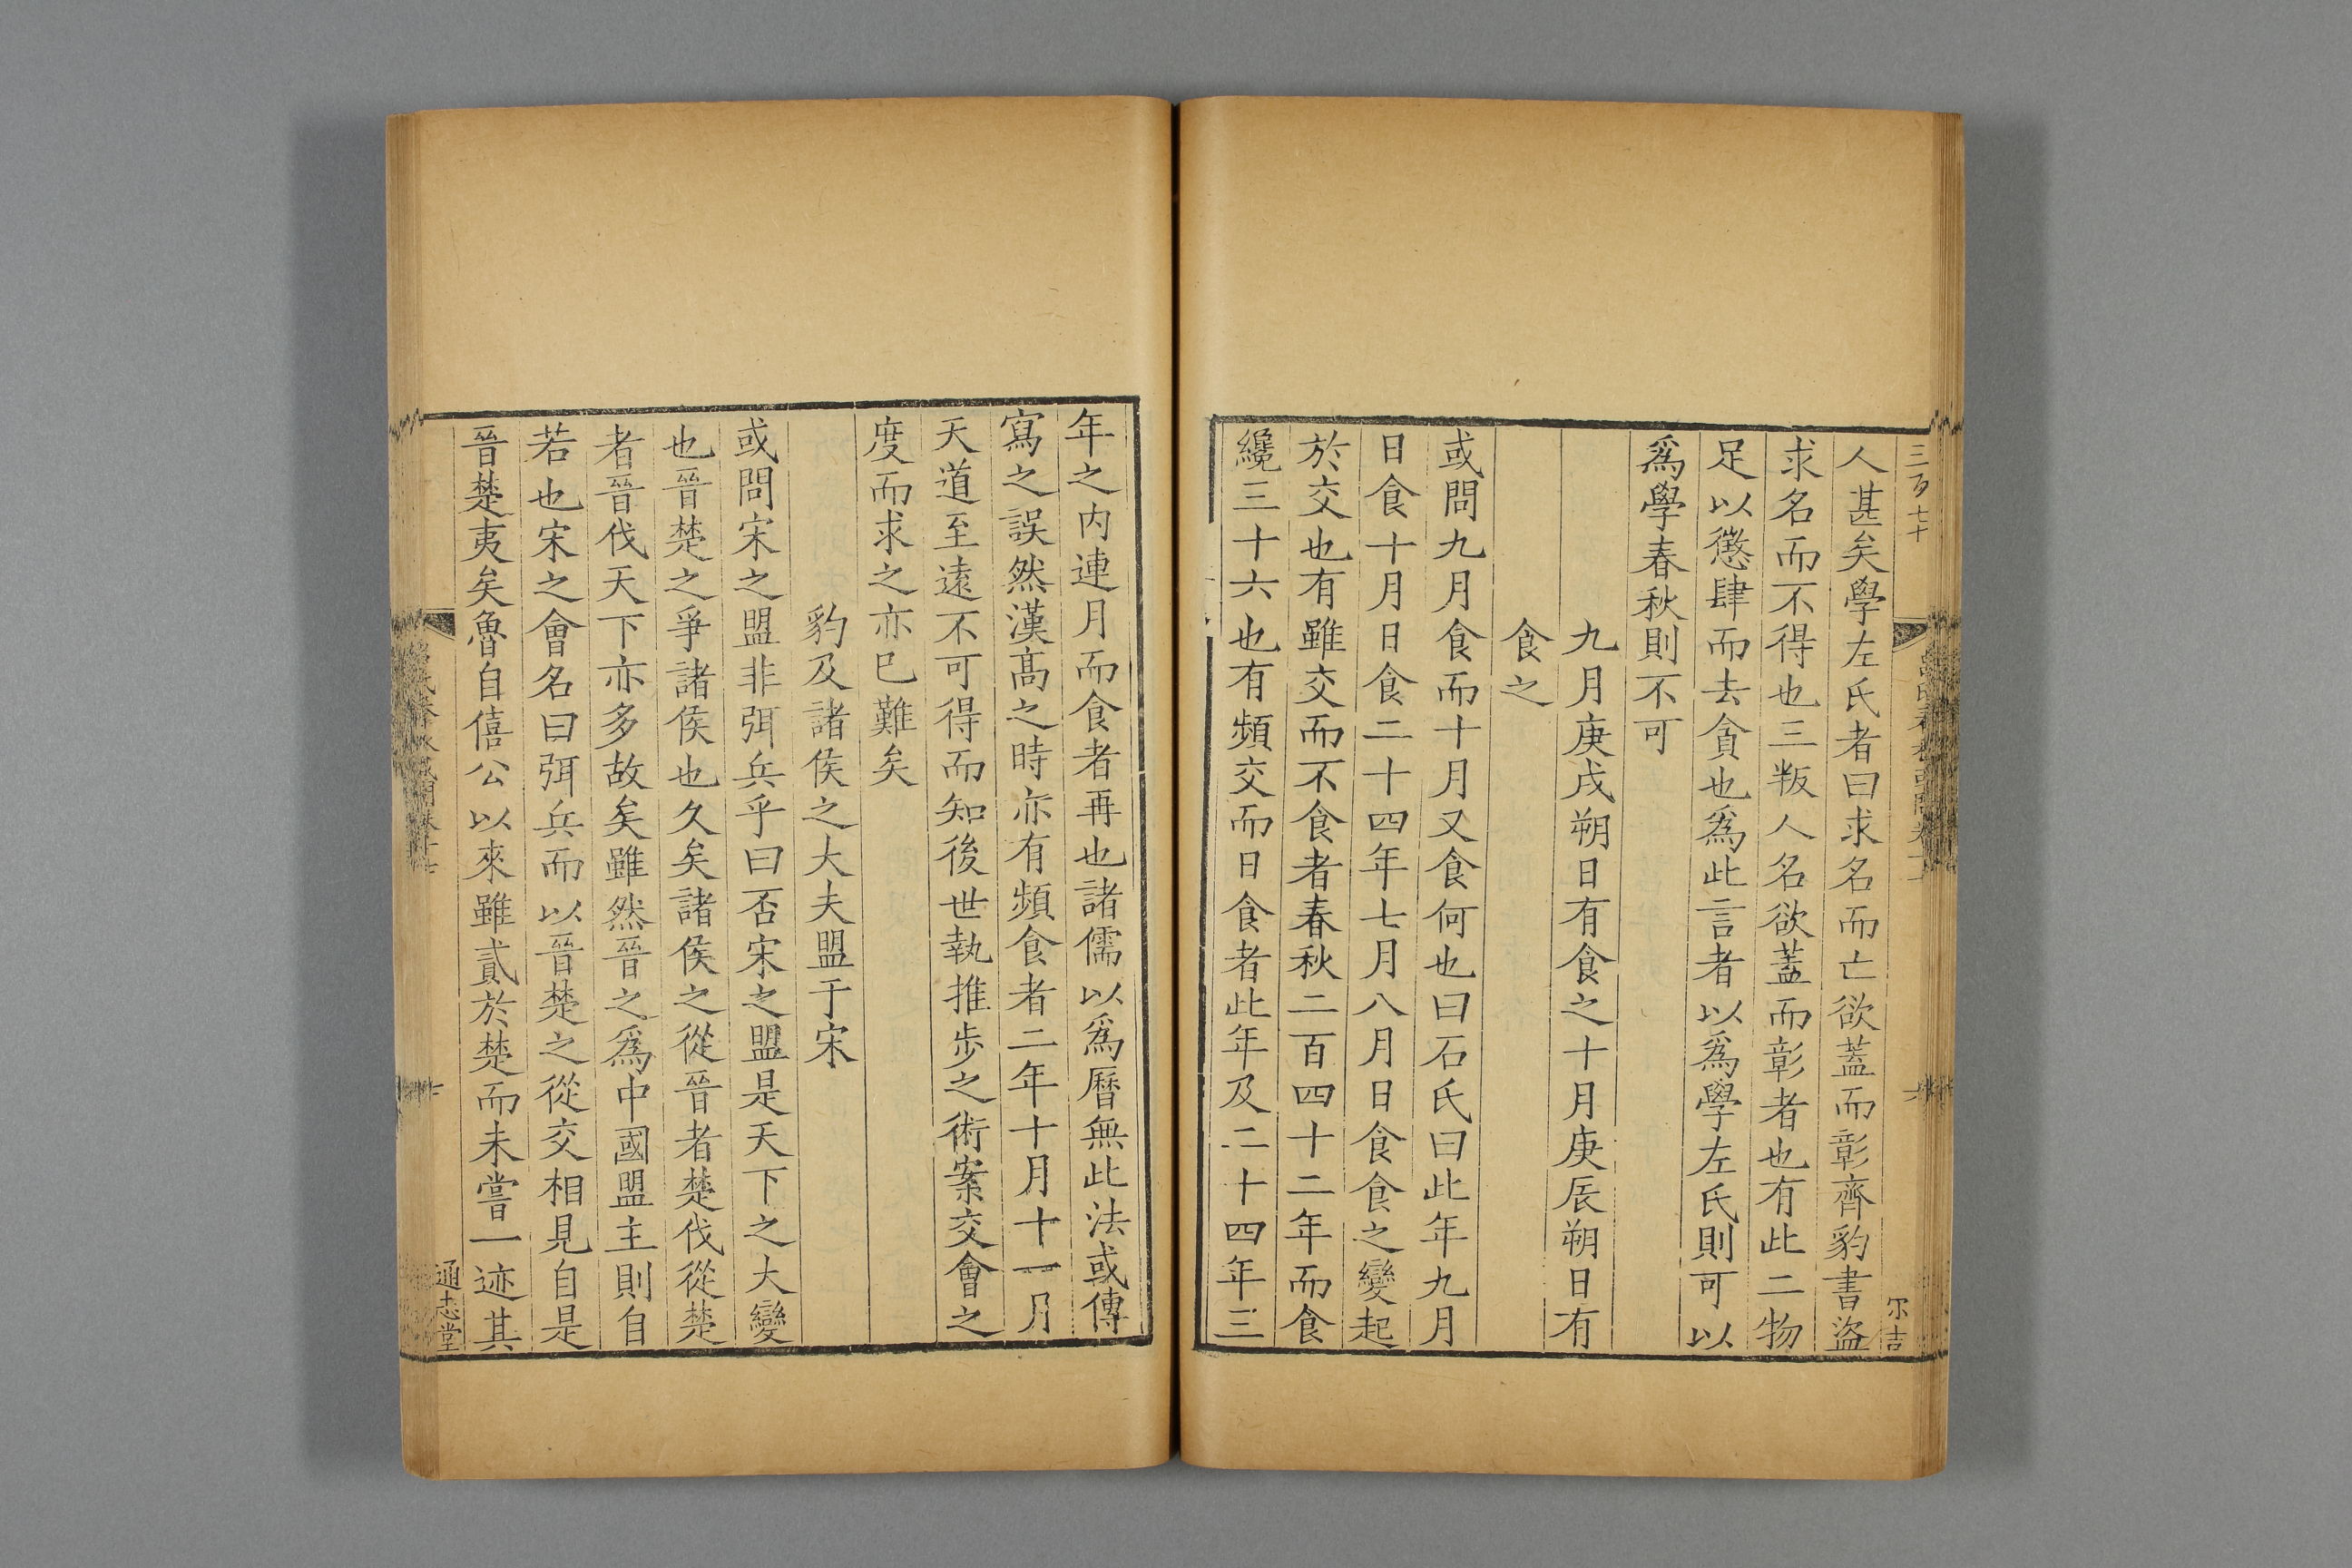 三百七十
尔吉
人甚矣學左氏者曰求名而亡欲蓋而彰齊豹書盜
求名而不得也三叛人名欲蓋而彰者也有此二物
足以懲肆而去貪也爲此言者以爲學左氏則可以
爲學春秋則不可
九月庚戌朔日有食之十月庚辰朔日有
食之
或問九月食而十月又食何也曰石氏曰此年九月
日食十月日食二十四年七月八月日食食之變起
於交也有雖交而不食者春秋二百四十二年而食
纔三十六也有頻交而日食者此年及二十四年三
年之内連月而食者再也諸儒以爲曆無此法或傳
寫之誤然漢髙之時亦有頻食者二年十月十一月
天道至遠不可得而知後世執推步之術案交會之
度而求之亦已難矣
豹及諸侯之大夫盟于宋
或問宋之盟非弭兵乎曰否宋之盟是天下之大變
也晉楚之爭諸侯也久矣諸侯之從晉者楚伐從楚
者晉伐天下亦多故矣雖然晉之爲中國盟主則自
若也宋之會名曰弭兵而以晉楚之從交相見自是
晉楚夷矣魯自僖公以來雖貳於楚而未嘗一迹其
通志堂